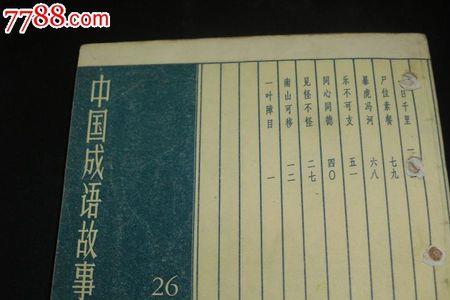 7788.com
中国收藏热线
中国成语故事
26
一叶障目 一
南山可移 一二
见怪不怪 二七
同心同德 四〇
乐不可支 五一
暴虎冯河 六八
尸位素餐 七九
日千里